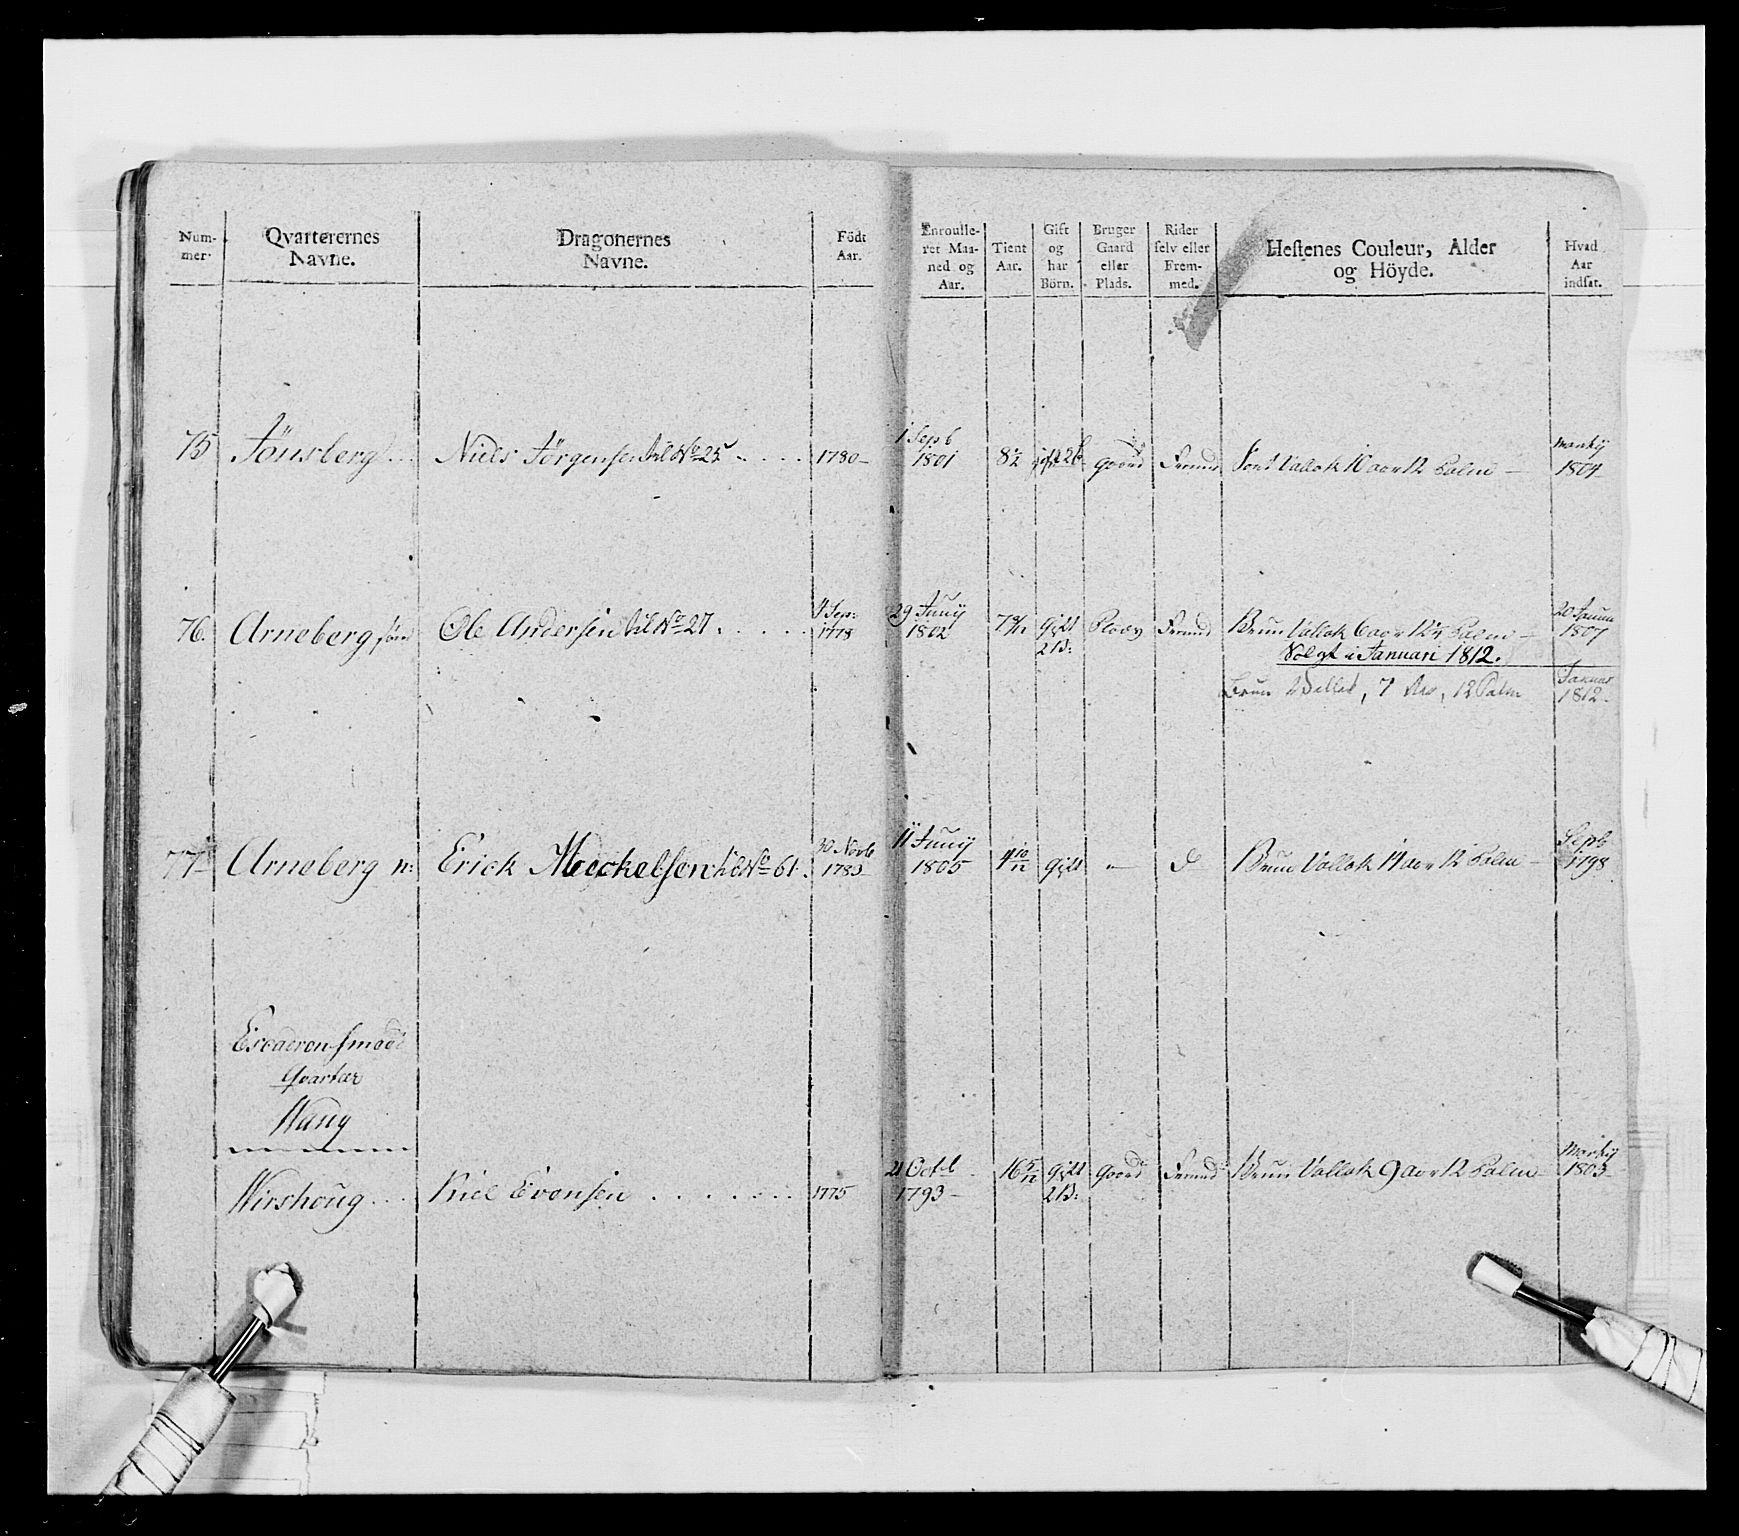 Num-
mer.
Qvarterernes
Navne.
Dragonernes
Navne.
Födt
Aar.
Enroulle-
ret Maa-
ned og
Aar.
Tient
Aar.
Gift
og
har
Börn.
Bruger
Gaard
eller
Plads.
Rider
selv eller
Frem-
med.
Hestenes Couleur, Alder
og Höyde.
Hvad
Aar
indsat.
75 Tönsberg Niels Jörgensen til No 25 1780 1 Sepb 1801 8 gift 2 b gaard Fremd Sort Vallak 10 aar 12 Palm 1804
76. Arneberg, sönd Ole Andersen til No 27 4 Sep: 1778 29 Juny 1802 Gift 2 B: Fremd Brun Vallak 6 aar Palm 1807
Solgt i Januari 1812.
Brun Vallak, 7 Aar, 12 Palm Januar 1812
77 Arneberg n: Erick Meckelsen til No 61. 30 Novb 1785 11 Juny 1805 4 10/12 gift — d Brun Vallak 14 aar 12 Palm Sepb 1798
Escadronsmad
Qvarteer
Wang
Wirshoug Kiel Evensen 1775 21 Octb 1793 16 5/12 Gift 2 B: Gaard Fremd Brun Vallak 9 aar 12 Palm 1803